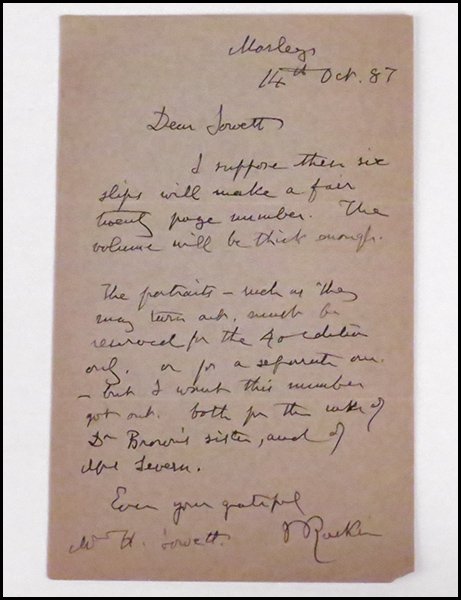 Morleys
14th Oct. 87
Dear Jowett
I suppose these six
slips will make a fair
twenty page number. The
volume will be thick enough.
The portraits – such as they
may turn out, must be
reserved for the 4o edition
only, or for a separate one.
– but I want this number
got out. both for the sake of
Dr Brown's sister, and of
Mrs Severn.
Ever your grateful
JRuskin
H. Jowett.